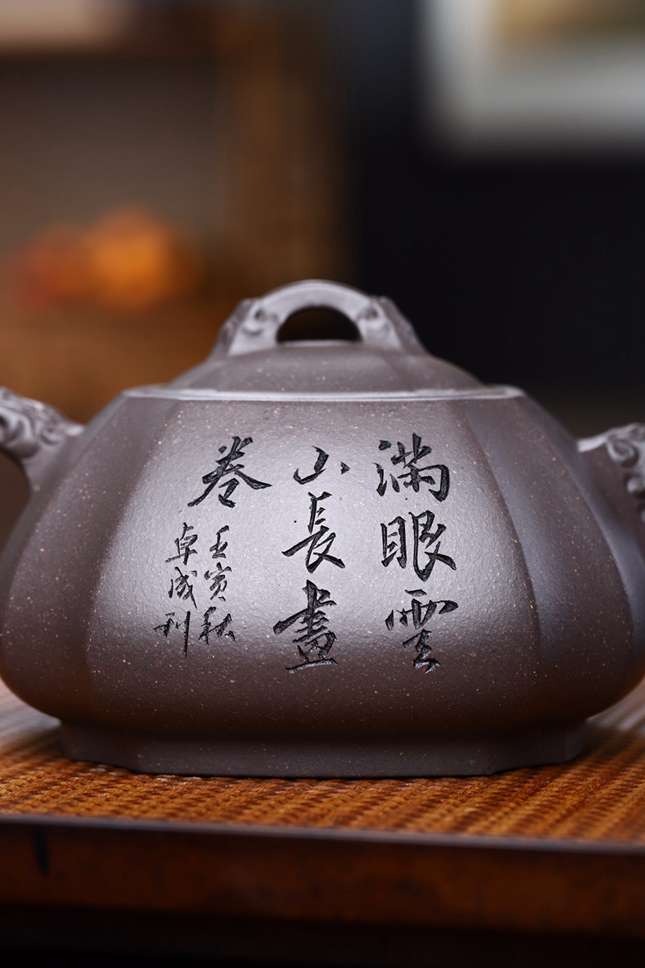 滿眼雲
山長畫
卷
壬寅秋
卓成刊